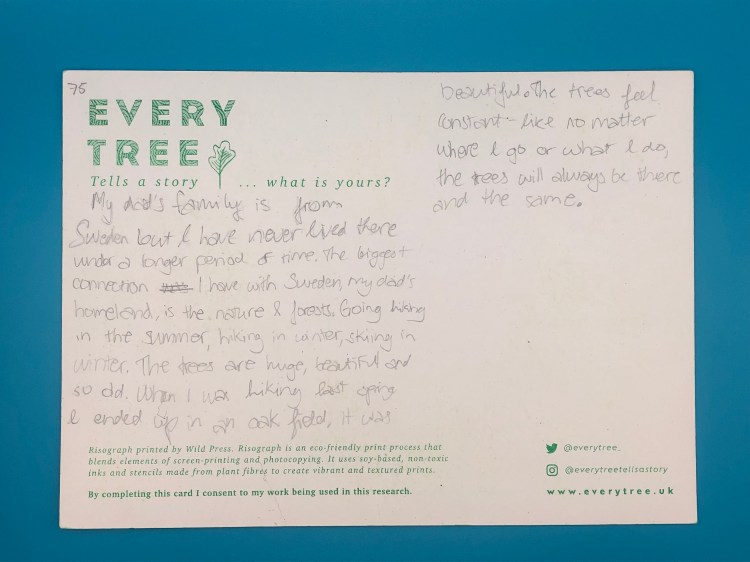 75
EVERY
TREE
Tells a story ... what is yours?
My dad's family is from
Sweden but I have never lived there
under a longer period of time. The biggest
connection I have with Sweden, my dad's
homeland, is the nature & forests. Going hiking
in the summer, hiking in winter, skiing in
winter. The trees are huge, beautiful and
so old. When I was hiking last spring
I ended up in an oak field, it was
beautiful. The trees feel
constant - like no matter
where I go or what I do,
the trees will always be there
and the same.
Risograph printed by Wild Press. Risograph is an eco-friendly print process that
blends elements of screen-printing and photocopying. It uses soy-based, non-toxic
inks and stencils made from plant fibres to create vibrant and textured prints.
By completing this card I consent to my work being used in this research.
@everytree_
@everytreetellsastory
www.everytree.uk